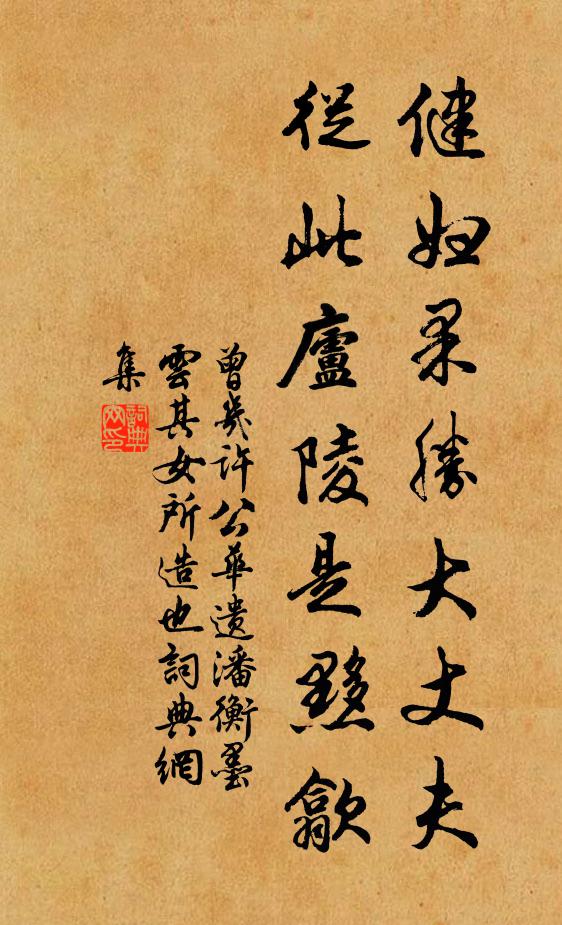 健婦果勝大丈夫
從此廬陵是黟歙
曾幾許公華遺潘衡墨
雲其女所造也詞典網
集
詞典
印